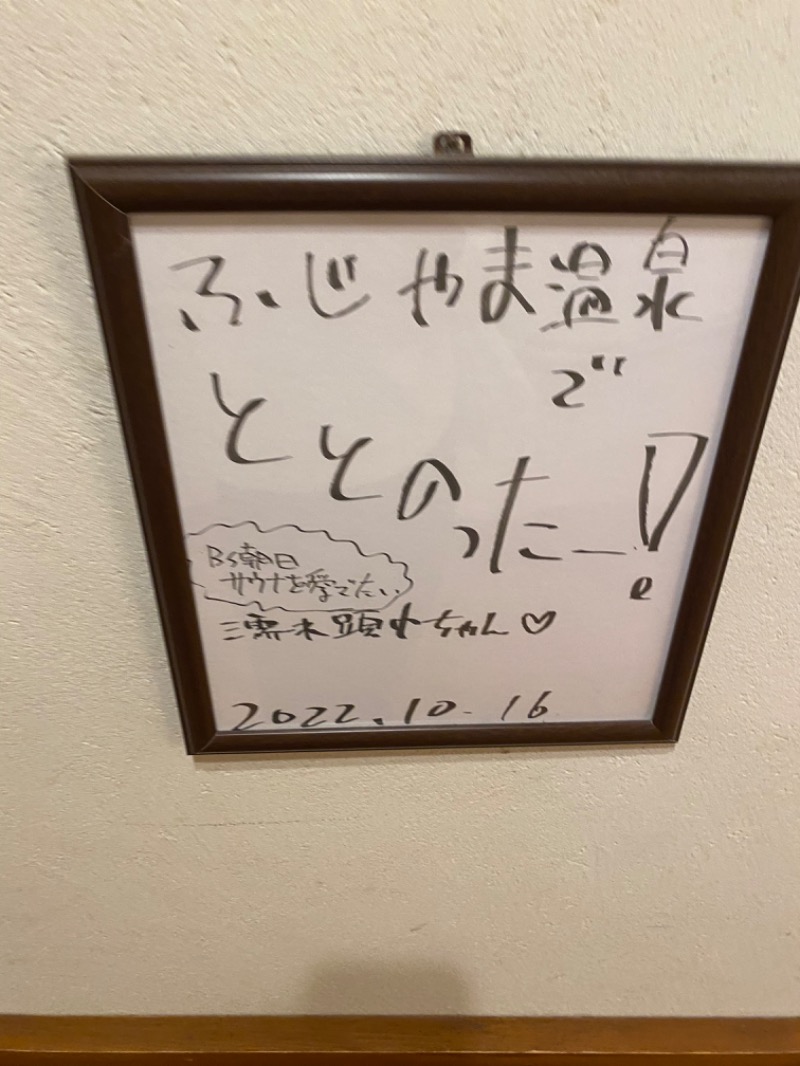 ふじやま温泉
で
ととのったー!
BS朝日
サウナを愛でたい
ちゃん♡
2022.10.16